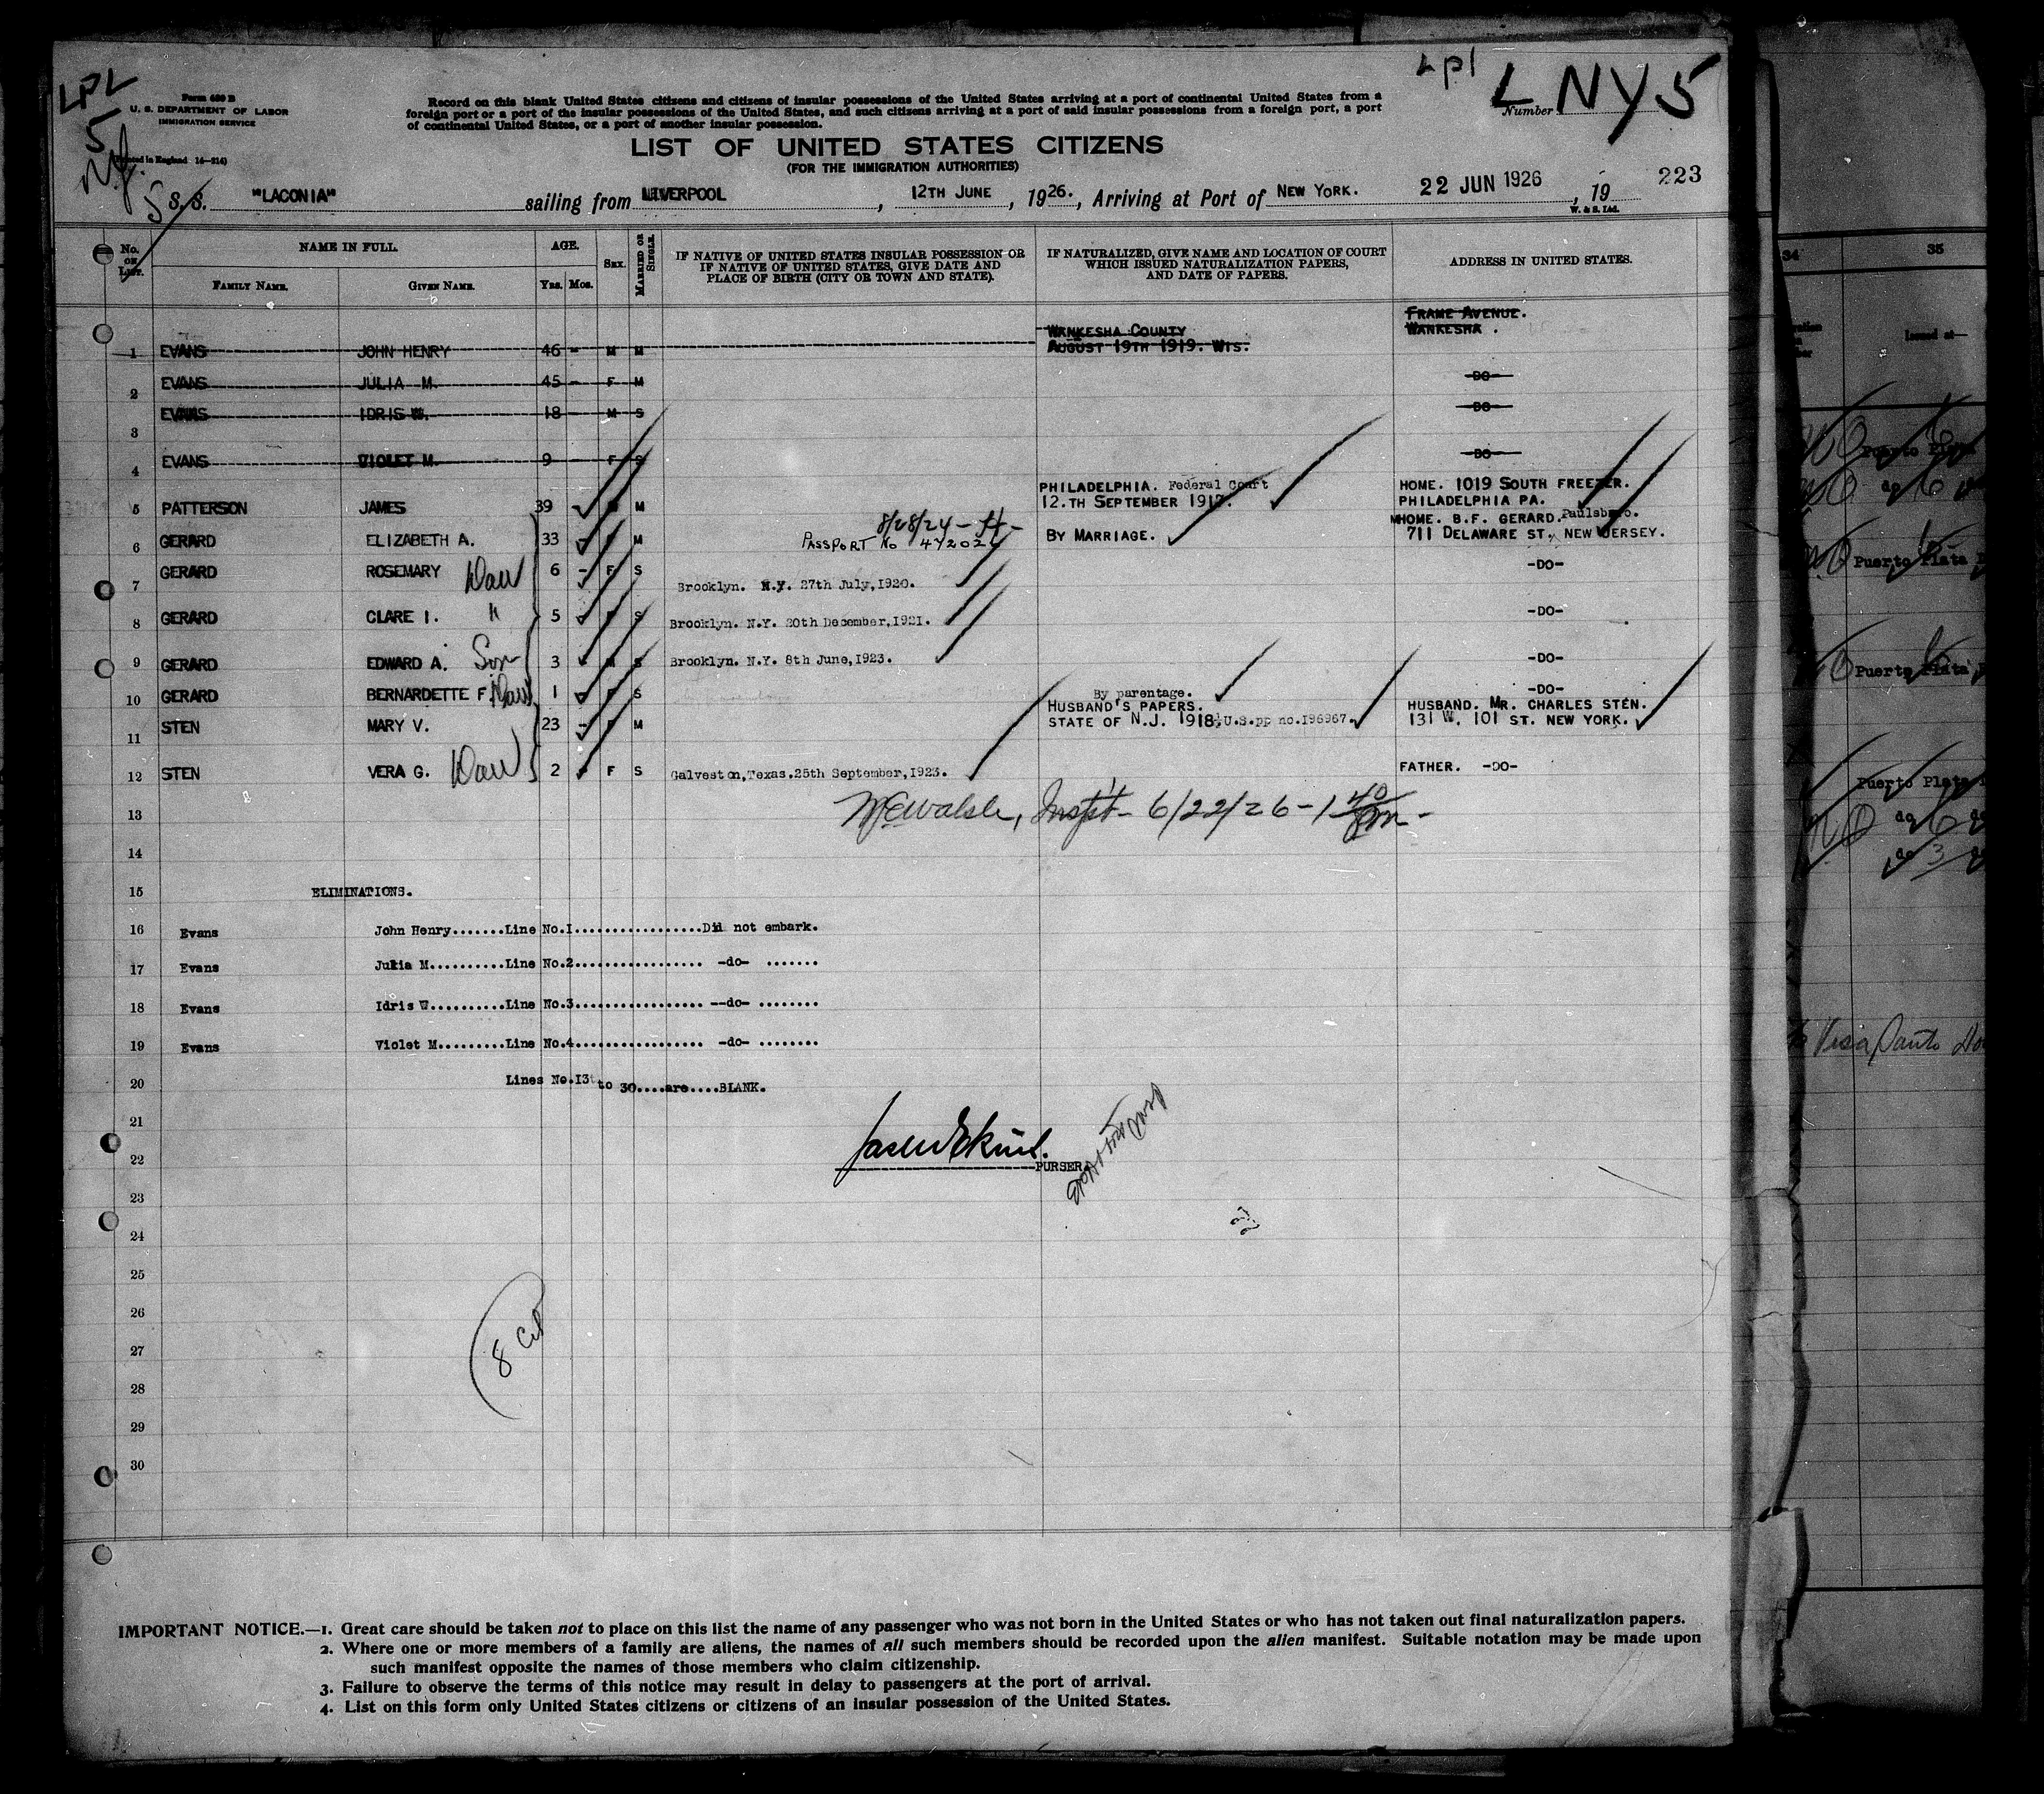 LPL
5
NY.
Form 630 B
U. S. DEPARTMENT OF LABOR
IMMIGRATION SERVICE
(Printed in England 14—214)
Record on this blank United States citizens and citizens of insular possessions of the United States arriving at a port of continental United States from a
foreign port or a port of the insular possessions of the United States, and such citizens arriving at a port of said insular possessions from a foreign port, a port
of continental United States, or a port of another insular possession.
Lpl
Number L NY 5
LIST OF UNITED STATES CITIZENS
(FOR THE IMMIGRATION AUTHORITIES)
223
5 S.S. "LACONIA" sailing from LIVERPOOL, 12TH JUNE, 1926., Arriving at Port of NEW YORK. 22 JUN 1926, 19
W. & S. Ltd.
No. ON LIST. NAME IN FULL. AGE. SEX. MARRIED OR SINGLE. IF NATIVE OF UNITED STATES INSULAR POSSESSION OR IF NATIVE OF UNITED STATES, GIVE DATE AND PLACE OF BIRTH (CITY OR TOWN AND STATE). IF NATURALIZED, GIVE NAME AND LOCATION OF COURT WHICH ISSUED NATURALIZATION PAPERS, AND DATE OF PAPERS. ADDRESS IN UNITED STATES.
FAMILY NAME. GIVEN NAME. Yrs. Mos.
WANKESHA COUNTY FRAME AVENUE. WANKESHA.
1 EVANS JOHN HENRY 46 - M M AUGUST 19TH 1919. WIS.
2 EVANS JULIA M. 45 - F M -DO-
3 EVANS IDRIS W. 18 - M S -DO-
4 EVANS VIOLET M. 9 - F S -DO-
PHILADELPHIA. Federal Court HOME. 1019 SOUTH FREEZER.
5 PATTERSON JAMES 39 M M 12.TH SEPTEMBER 1917. PHILADELPHIA PA.
8/28/24 - HOME. B.F. GERARD. Paulsboro.
6 GERARD ELIZABETH A. 33 - F M PASSPORT No BY MARRIAGE. 711 DELAWARE ST, NEW JERSEY.
7 GERARD ROSEMARY Dau 6 - F S Brooklyn. N.Y. 27th July,1920. -DO-
8 GERARD CLARE I. " 5 - F S Brooklyn. N.Y. 20th December,1921. -DO-
9 GERARD EDWARD A. Son 3 M S Brooklyn. N.Y. 8th June,1923. -DO-
10 GERARD BERNARDETTE F. Dau 1 - F S By parentage. -DO-
HUSBAND'S PAPERS. HUSBAND. MR. CHARLES STEN.
11 STEN MARY V. 23 - F M STATE OF N.J. 1918; U.S.pp no.196967. 131 W. 101 ST. NEW YORK.
12 STEN VERA G. Dau 2 - F S Galveston,Texas.25th September,1923. FATHER. -DO-
13 Insp't - 6/22/26 - 1 40 pm -
14
15 ELIMINATIONS.
16 Evans John Henry.......Line No.1.................Did not embark.
17 Evans Julia M..........Line No.2................. -do- .......
18 Evans Idris W..........Line No.3................. --do- ........
19 Evans Violet M.........Line No.4................. -do- ........
20 Lines No.13 to 30....are....BLANK.
21
22 PURSER.
23
24
25
26
27 8 Cit
28
29
30
IMPORTANT NOTICE.—1. Great care should be taken not to place on this list the name of any passenger who was not born in the United States or who has not taken out final naturalization papers.
2. Where one or more members of a family are aliens, the names of all such members should be recorded upon the alien manifest. Suitable notation may be made upon
such manifest opposite the names of those members who claim citizenship.
3. Failure to observe the terms of this notice may result in delay to passengers at the port of arrival.
4. List on this form only United States citizens or citizens of an insular possession of the United States.
34 35
Issued at—
Puerto Plata
do 6
Puerto Plata
Puerto Plata
Puerto Plata
do 6
do 3
Visa Santo